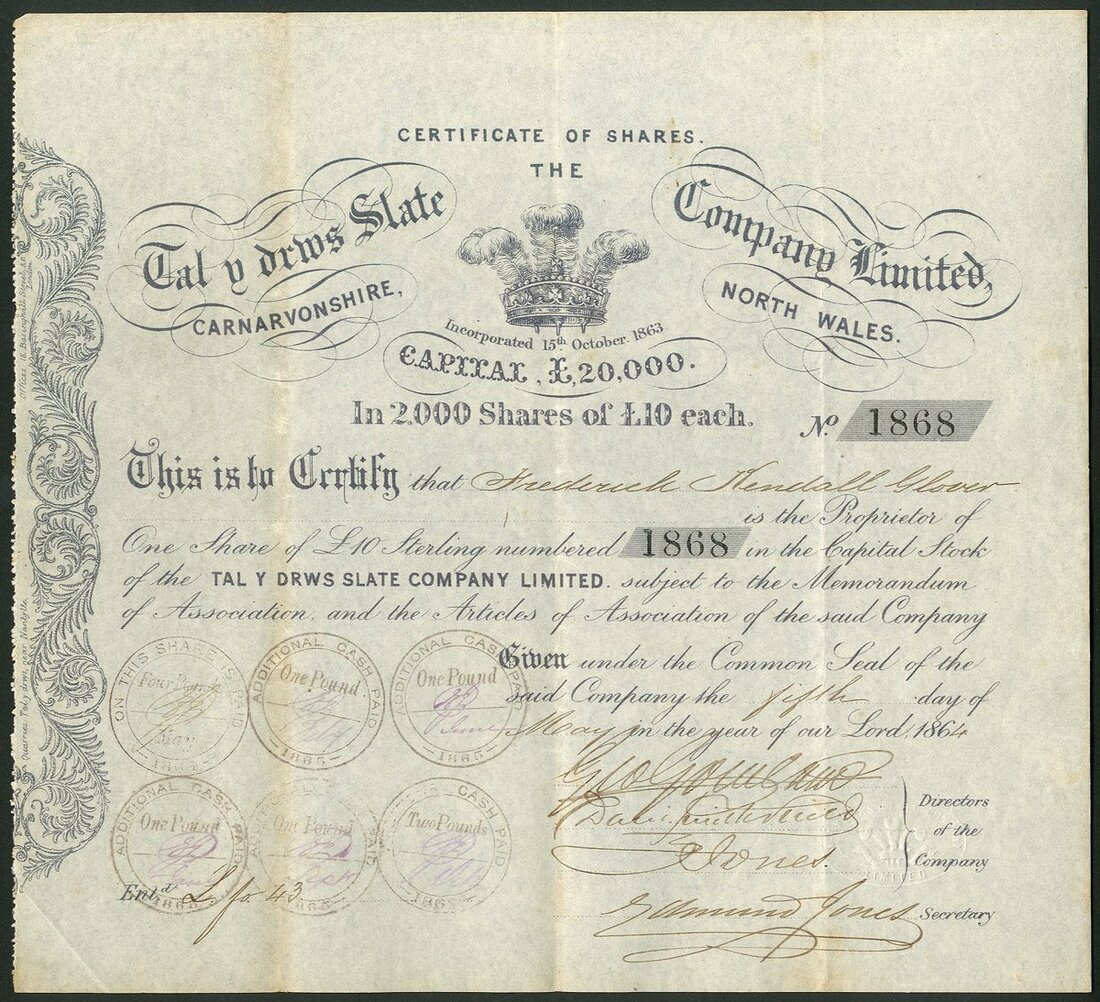 CERTIFICATE OF SHARES.
THE
Tal y drws Slate Company Limited,
CARNARVONSHIRE, NORTH WALES.
Incorporated 15th October. 1863
CAPITAL, £20,000.
In 2000 Shares of £10 each.
No. 1868
This is to Certify that Frederick Kendall Glover
is the Proprietor of
One Share of £10 Sterling numbered 1868 in the Capital Stock
of the TAL Y DRWS SLATE COMPANY LIMITED. subject to the Memorandum
of Association, and the Articles of Association of the said Company
Given under the Common Seal of the
said Company the fifth day of
May in the year of our Lord, 1864
Directors
of the
Company
E Jones.
Edmund Jones Secretary
ON THIS SHARE IS PAID
Four Pounds
May
ADDITIONAL CASH PAID
One Pound
1865
ADDITIONAL CASH PAID
One Pound
June
1865
ADDITIONAL CASH PAID
One Pound
One Pound
Sept
CASH PAID
Two Pounds
Entd. L fo. 43
Quarries, Tal y drws, near Nantlle.
London
LIMITED